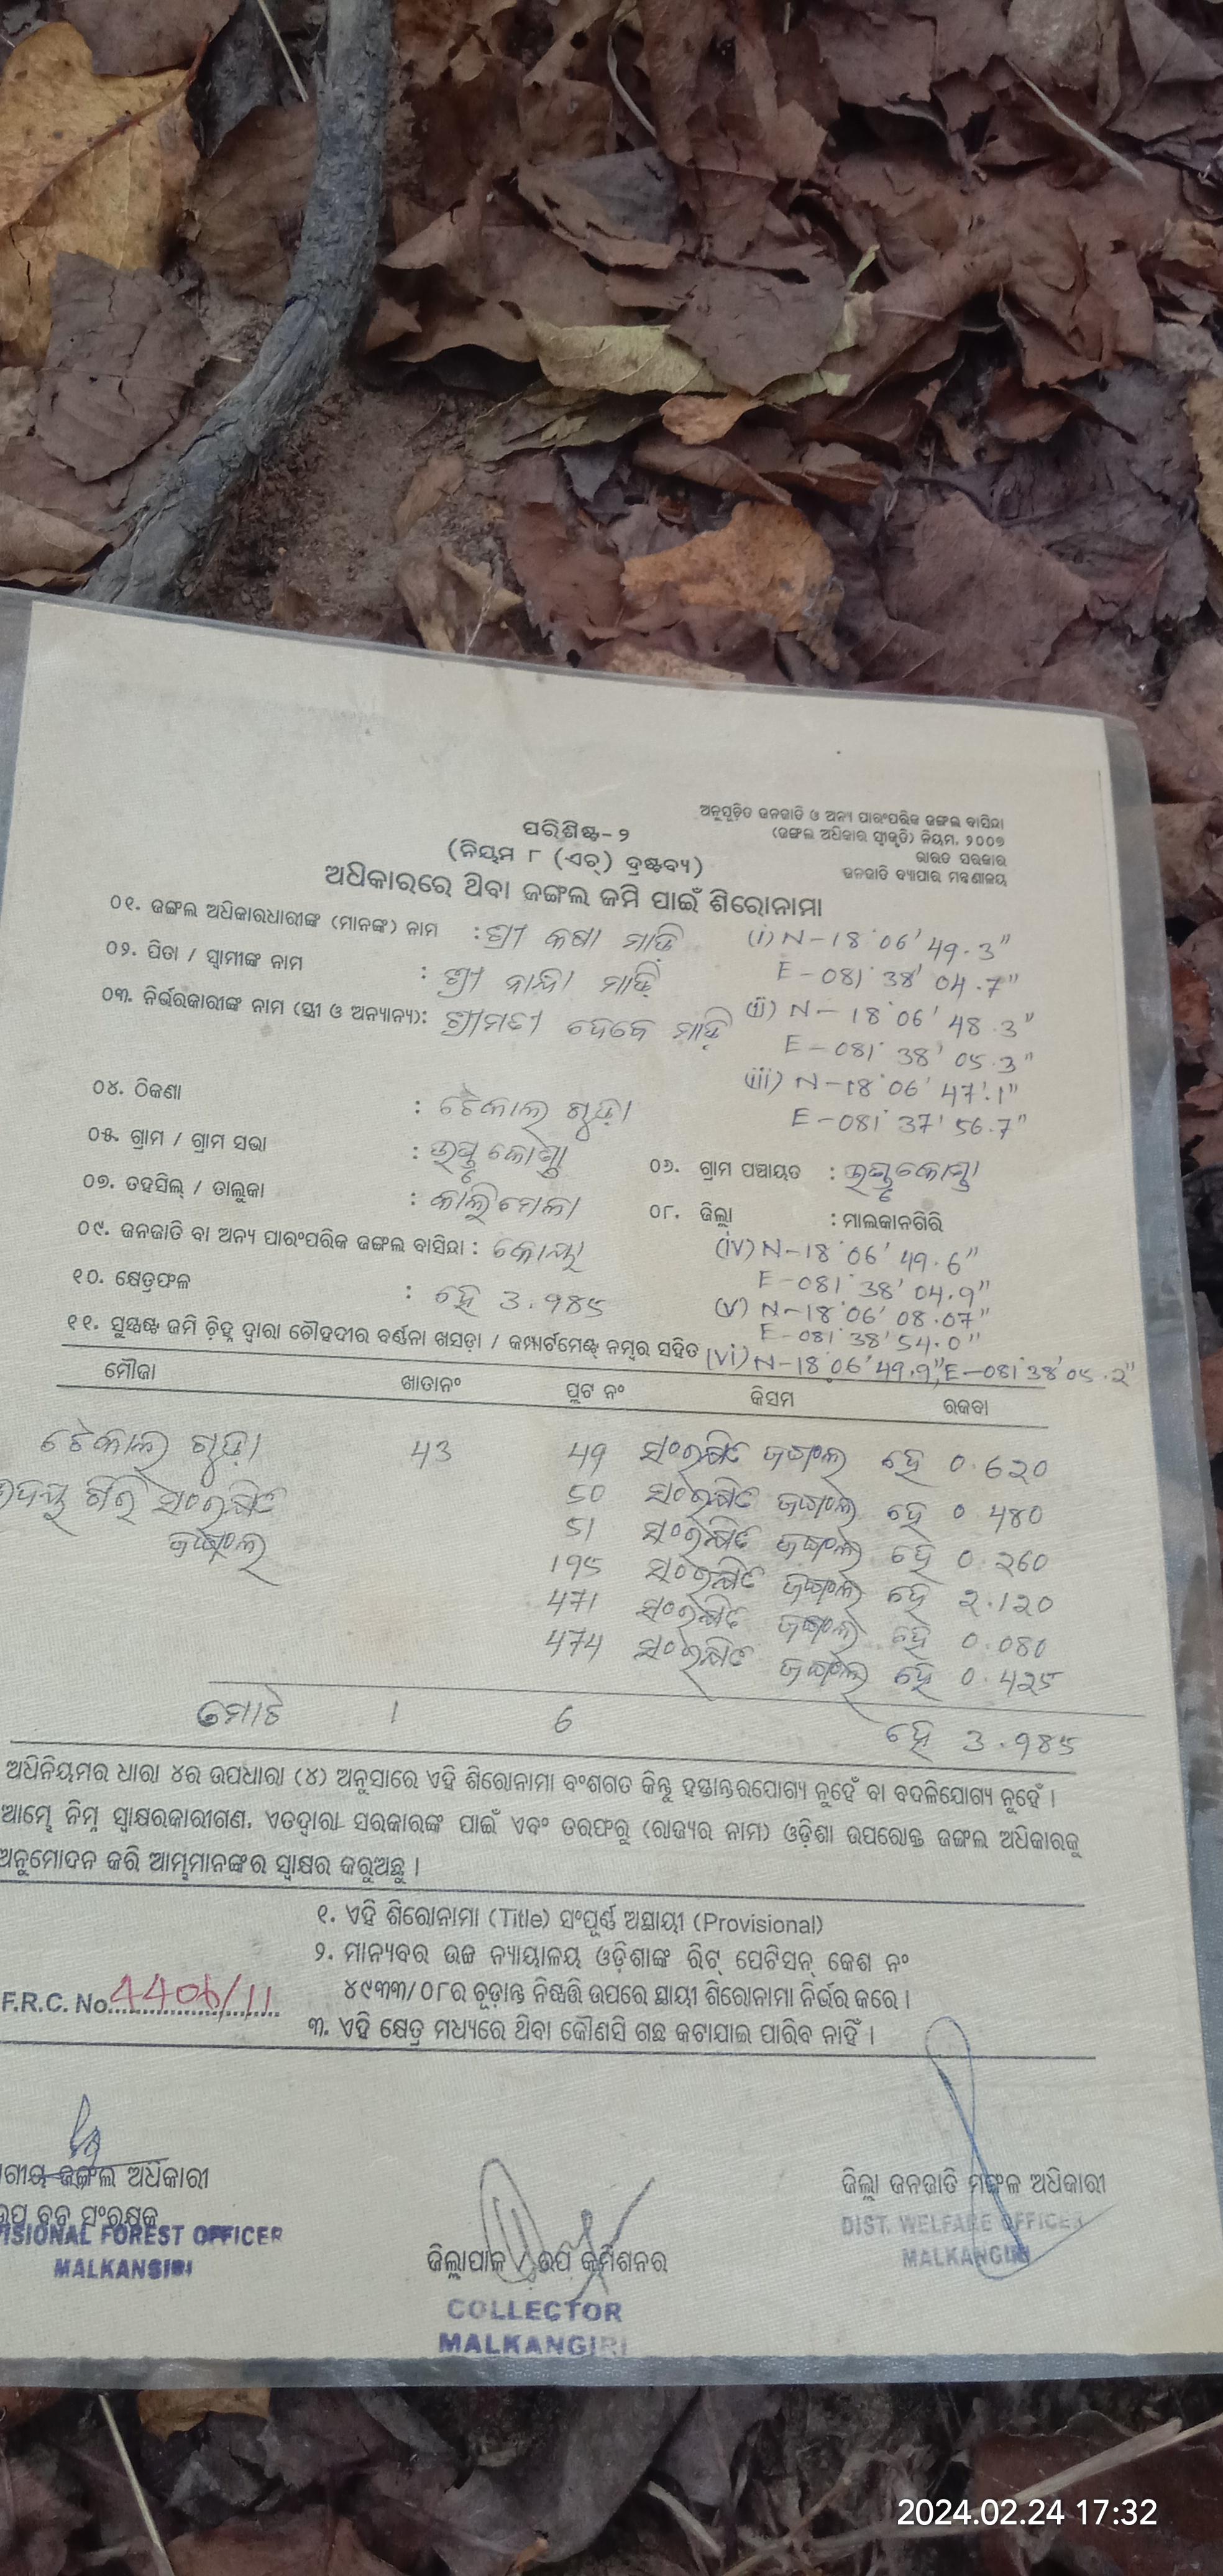 ଅନୁସୂଚିତ ଜନଜାତି ଓ ଅନ୍ୟ ପାରଂପରିକ ଜଙ୍ଗଲ ବାସିନ୍ଦା
(ଜଙ୍ଗଲ ଅଧିକାର ସ୍ୱୀକୃତି) ନିୟମ, ୨୦୦୭
ଭାରତ ସରକାର
ଜନଜାତି ବ୍ୟାପାର ମନ୍ତ୍ରଣାଳୟ
ପରିଶିଷ୍ଟ-୨
(ନିୟମ ୮ (ଏଚ୍) ଦ୍ରଷ୍ଟବ୍ୟ)
ଅଧିକାରରେ ଥିବା ଜଙ୍ଗଲ ଜମି ପାଇଁ ଶିରୋନାମା
୦୧. ଜଙ୍ଗଲ ଅଧିକାରଧାରୀଙ୍କ (ମାନଙ୍କ) ନାମ : ଶ୍ରୀ କଷା ମାଡ଼ି (i) N-18°06' 49.3"
E-081°38' 04.7"
୦୨. ପିତା / ସ୍ୱାମୀଙ୍କ ନାମ : ଶ୍ରୀ ନାନ୍ଦା ମାଡ଼ି
(ii) N-18°06' 48.3"
୦୩. ନିର୍ଭରକାରୀଙ୍କ ନାମ (ସ୍ତ୍ରୀ ଓ ଅନ୍ୟାନ୍ୟ): ଶ୍ରୀମତୀ ଦେବେ ମାଡ଼ି
E-081° 38' 05.3"
(iii) N-18°06' 47.1"
E-081° 37' 56.7"
୦୪. ଠିକଣା : ଟେକାଲ ଗୁଡ଼ା
୦୫. ଗ୍ରାମ / ଗ୍ରାମ ସଭା :
୦୬. ଗ୍ରାମ ପଞ୍ଚାୟତ :
୦୭. ତହସିଲ୍ / ତାଲୁକା : କାଲିମେଳା
୦୮. ଜିଲ୍ଲା : ମାଲକାନଗିରି
୦୯. ଜନଜାତି ବା ଅନ୍ୟ ପାରଂପରିକ ଜଙ୍ଗଲ ବାସିନ୍ଦା : କୋୟା
(iv) N-18°06' 49.6"
E-081°38' 04.9"
୧୦. କ୍ଷେତ୍ରଫଳ : ହେ 3.985
(v) N-18°06' 08.07"
E-081°38' 54.0"
୧୧. ସୁସ୍ପଷ୍ଟ ଜମି ଚିହ୍ନ ଦ୍ୱାରା ଚୌହଦୀର ବର୍ଣ୍ଣନା ଖସଡ଼ା / କମ୍ପାର୍ଟମେଣ୍ଟ୍ ନମ୍ବର ସହିତ (vi) N-18°06'49.9", E-081°38'05.2"
ମୌଜା ଖାତାନଂ ପ୍ଲଟ ନଂ କିସମ ରକବା
ଟେକାଲ ଗୁଡ଼ା 43 49 ସଂରକ୍ଷିତ ଜଙ୍ଗଲ ହେ 0.620
ଗିରି ସଂରକ୍ଷିତ 50 ସଂରକ୍ଷିତ ଜଙ୍ଗଲ ହେ 0.480
ଜଙ୍ଗଲ 51 ସଂରକ୍ଷିତ ଜଙ୍ଗଲ ହେ 0.260
195 ସଂରକ୍ଷିତ ଜଙ୍ଗଲ ହେ 2.120
471 ସଂରକ୍ଷିତ ଜଙ୍ଗଲ ହେ 0.080
474 ସଂରକ୍ଷିତ ଜଙ୍ଗଲ ହେ 0.425
ମୋଟ 1 6 ହେ 3.985
ଅଧିନିୟମର ଧାରା ୪ର ଉପଧାରା (୪) ଅନୁସାରେ ଏହି ଶିରୋନାମା ବଂଶଗତ କିନ୍ତୁ ହସ୍ତାନ୍ତରଯୋଗ୍ୟ ନୁହେଁ ବା ବଦଳିଯୋଗ୍ୟ ନୁହେଁ ।
ଆମ୍ଭେ ନିମ୍ନ ସ୍ୱାକ୍ଷରକାରୀଗଣ, ଏତଦ୍ଦ୍ୱାରା ସରକାରଙ୍କ ପାଇଁ ଏବଂ ତରଫରୁ (ରାଜ୍ୟର ନାମ) ଓଡ଼ିଶା ଉପରୋକ୍ତ ଜଙ୍ଗଲ ଅଧିକାରକୁ
ଅନୁମୋଦନ କରି ଆମ୍ଭମାନଙ୍କର ସ୍ୱାକ୍ଷର କରୁଅଛୁ ।
୧. ଏହି ଶିରୋନାମା (Title) ସଂପୂର୍ଣ୍ଣ ଅସ୍ଥାୟୀ (Provisional)
୨. ମାନ୍ୟବର ଉଚ୍ଚ ନ୍ୟାୟାଳୟ ଓଡ଼ିଶାଙ୍କ ରିଟ୍ ପେଟିସନ୍ କେଶ ନଂ
୪୯୩୩/୦୮ର ଚୂଡ଼ାନ୍ତ ନିଷ୍ପତ୍ତି ଉପରେ ସ୍ଥାୟୀ ଶିରୋନାମା ନିର୍ଭର କରେ ।
F.R.C. No.
୩. ଏହି କ୍ଷେତ୍ର ମଧ୍ୟରେ ଥିବା କୌଣସି ଗଛ କଟାଯାଇ ପାରିବ ନାହିଁ ।
ଗୀୟ ଜଙ୍ଗଲ ଅଧିକାରୀ
ଉପ ବନ ସଂରକ୍ଷକ
VISIONAL FOREST OFFICER
MALKANGIRI
ଜିଲ୍ଲାପାଳ / ଉପ କମିଶନର
COLLECTOR
MALKANGIRI
ଜିଲ୍ଲା ଜନଜାତି ମଙ୍ଗଳ ଅଧିକାରୀ
DIST. WELFARE OFFICER
MALKANGIRI
2024.02.24 17:32